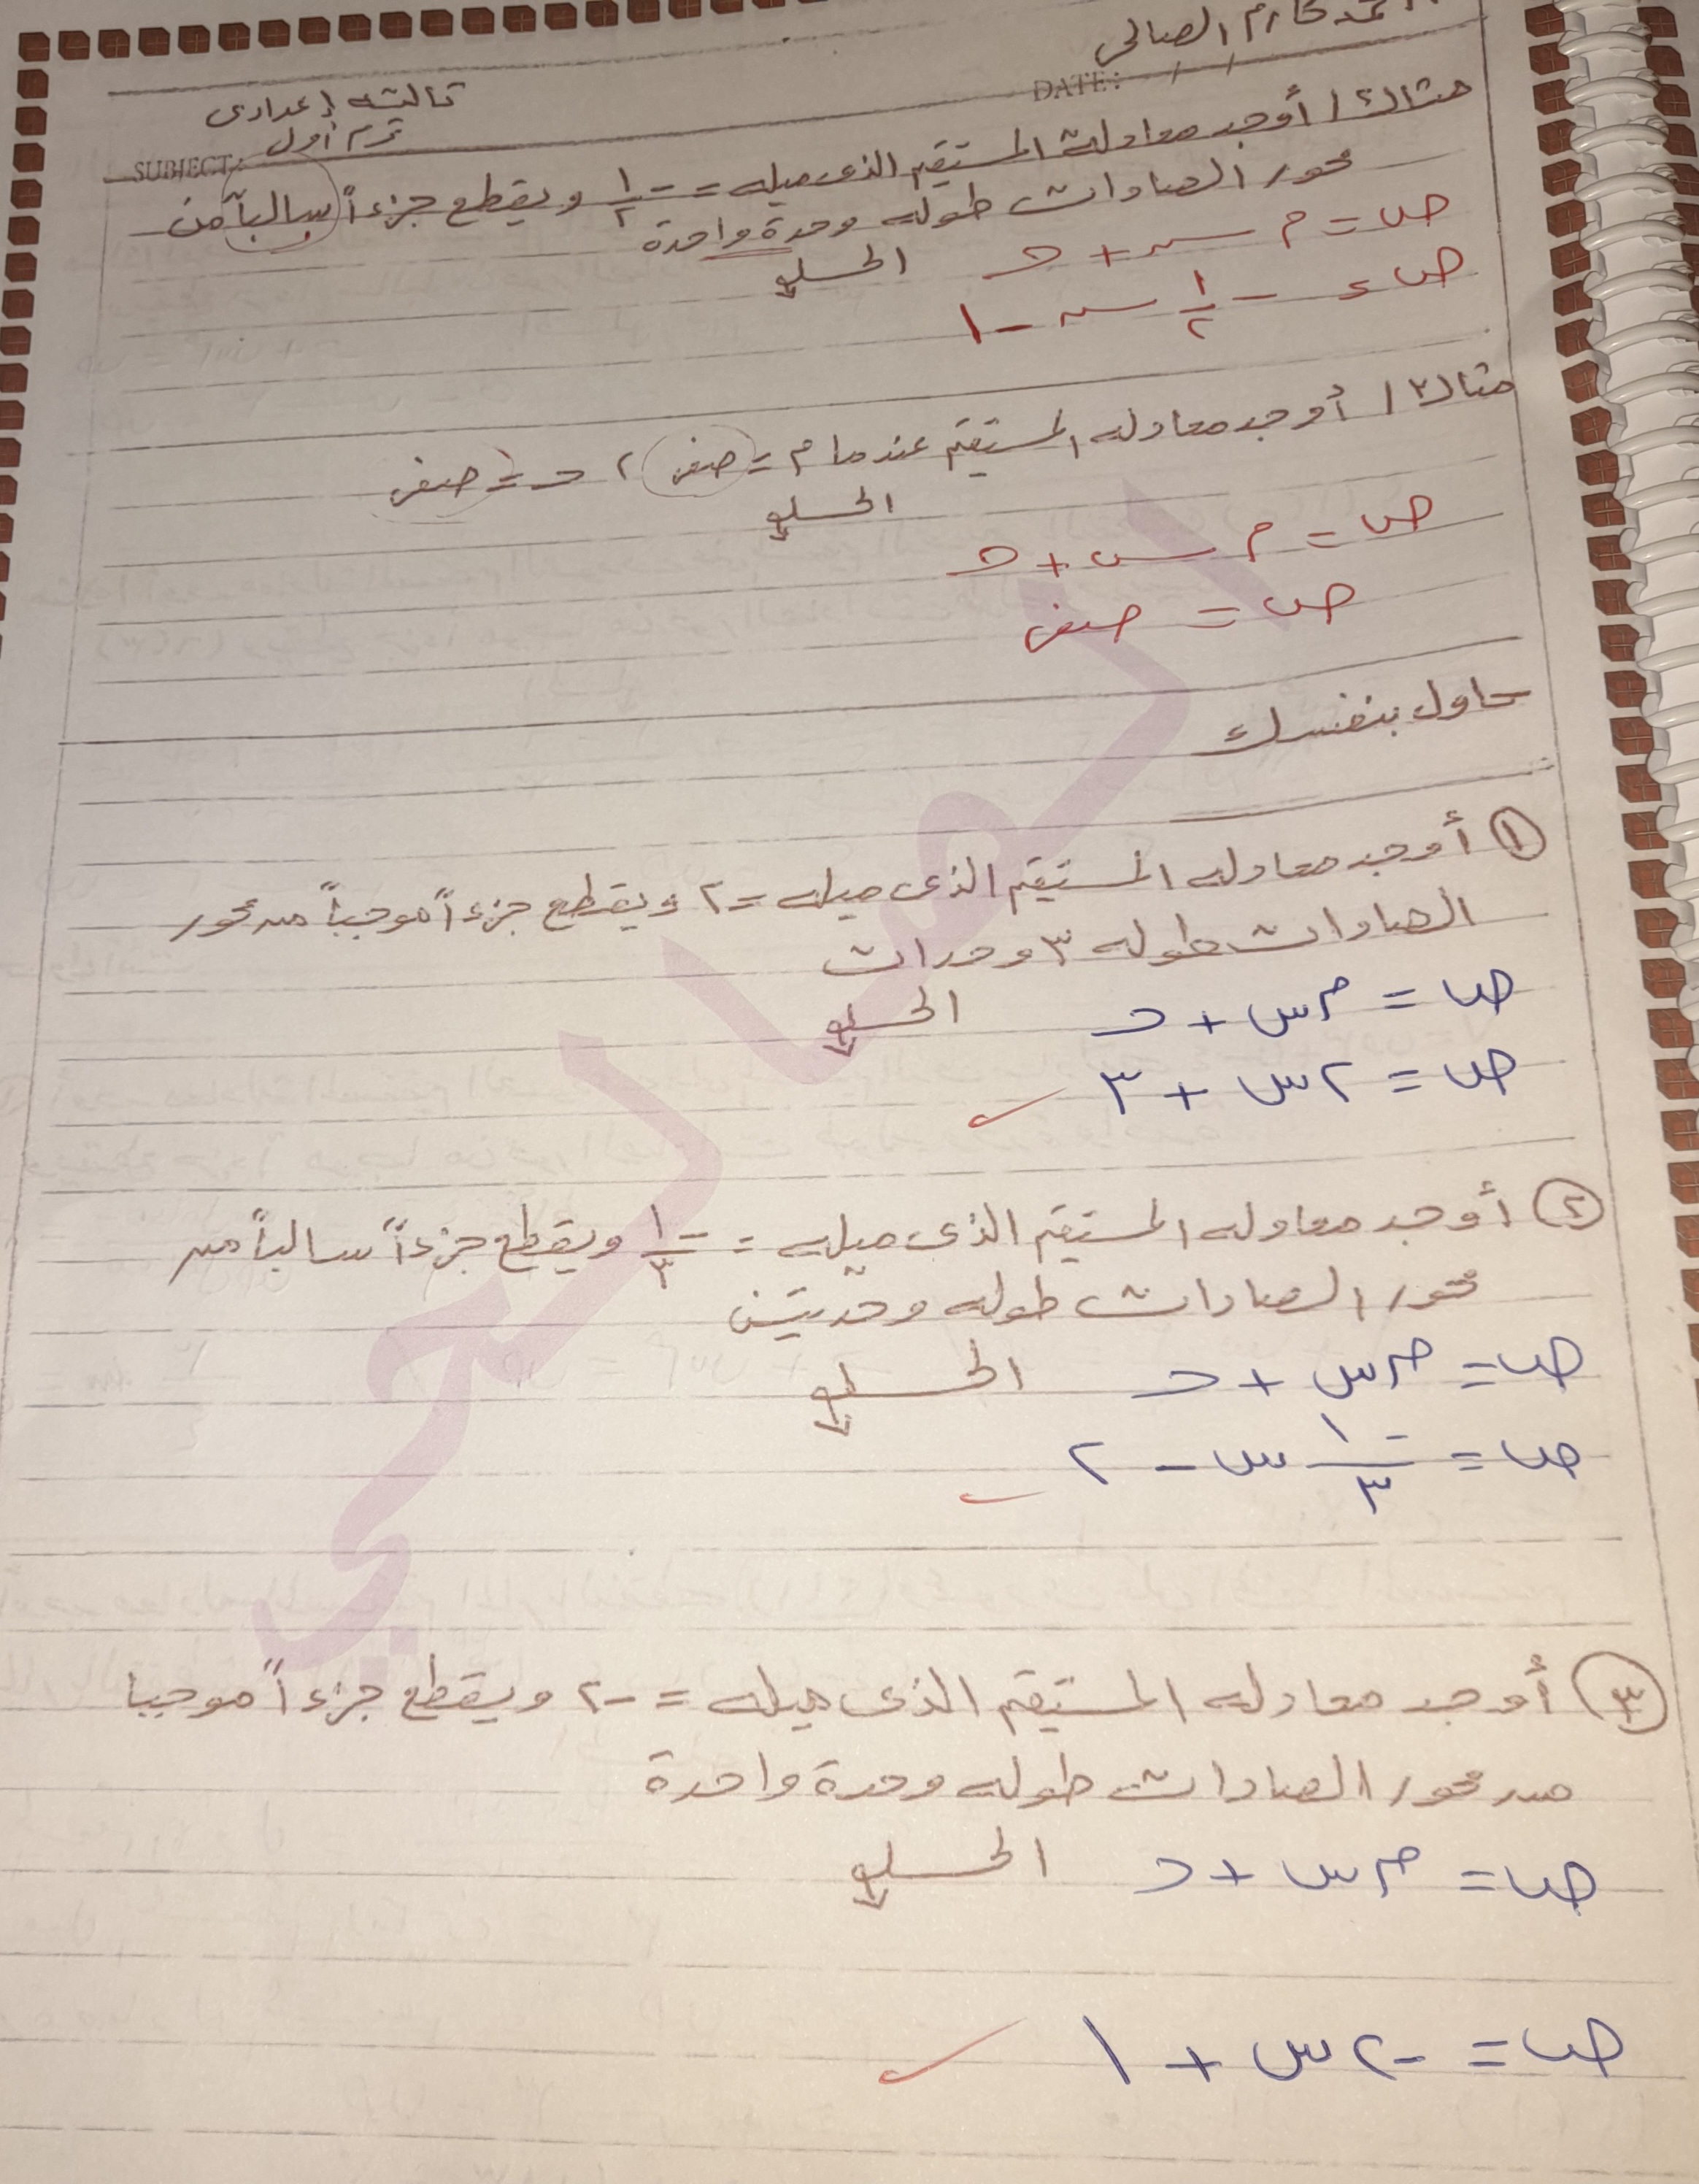 كارم الصالحى
DATE: / /
ثالثه إعدادى
ترم أول
SUBJECT:
مثال٢ / أوجد معادلة المستقيم الذى ميله = -١/٢ ويقطع جزءاً سالباً من
محور الصادات طوله وحدة واحدة
الحل
ص = م س + حـ
ص = -١/٢ س - ١
مثال٣ / أوجد معادله المستقيم عندما م = صفر ، حـ = صفر
الحل
ص = م س + حـ
ص = صفر
حاول بنفسك
١ أوجد معادله المستقيم الذى ميله = ٢ ويقطع جزءاً موجباً من محور
الصادات طوله ٣ وحدات
الحل
ص = م س + حـ
ص = ٢س + ٣
٢ أوجد معادله المستقيم الذى ميله = -١/٣ ويقطع جزءاً سالباً من
محور الصادات طوله وحديتين
الحل
ص = م س + حـ
ص = -١/٣ س - ٢
٣ أوجد معادله المستقيم الذى ميله = -٢ ويقطع جزءاً موجبا
من محور الصادات طوله وحدة واحدة
الحل
ص = م س + حـ
ص = -٢س + ١
الصالحي